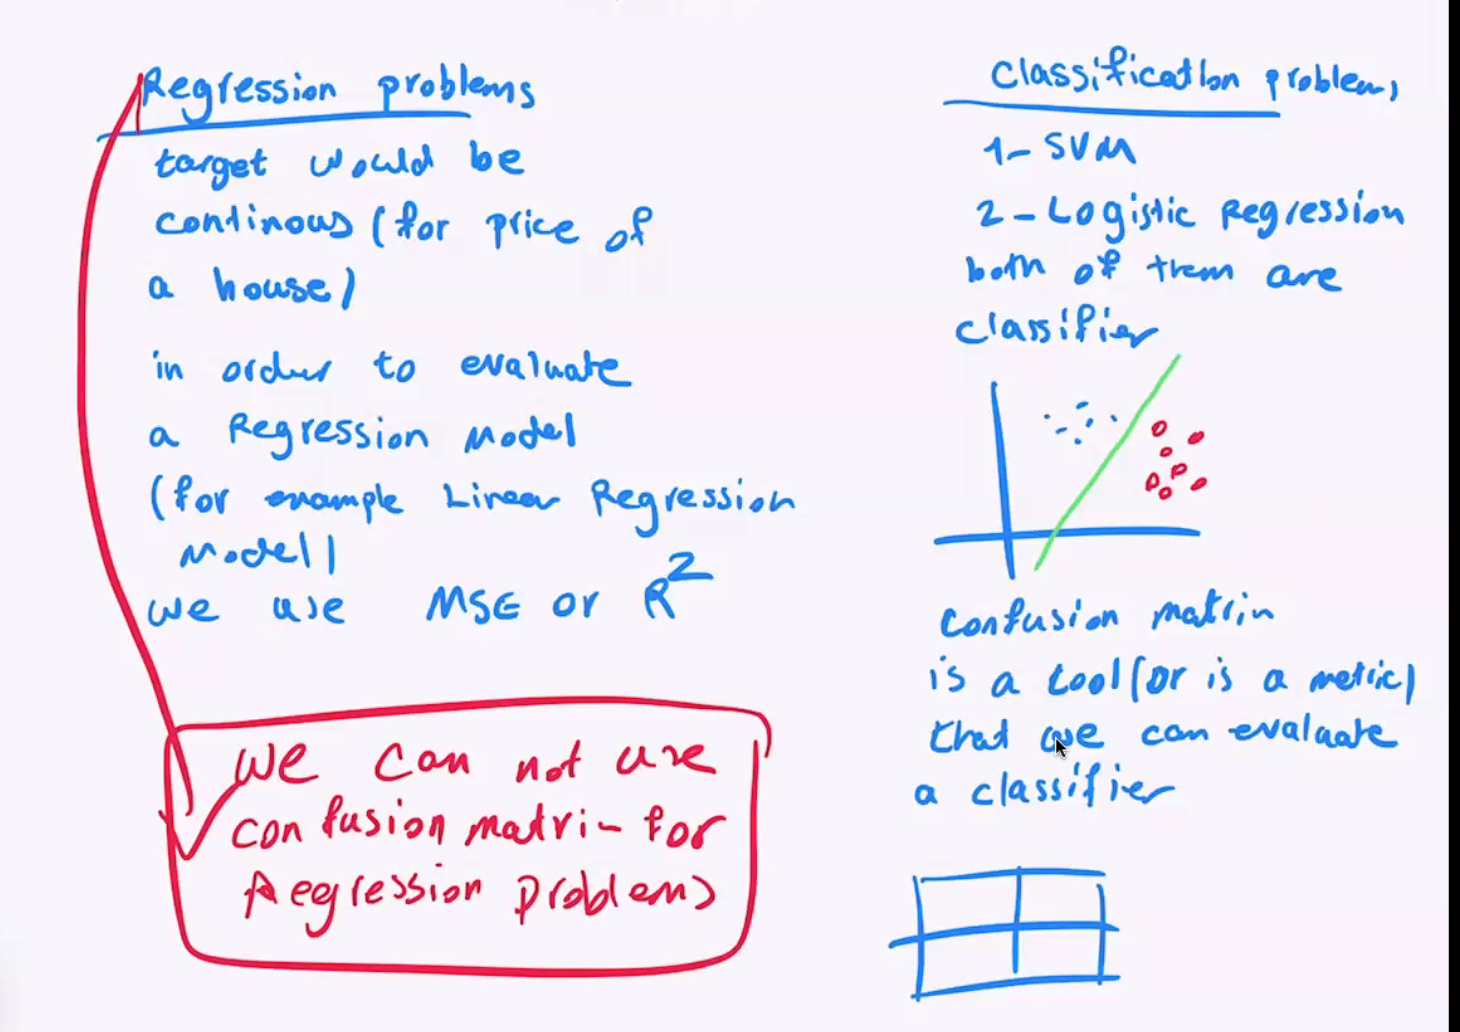 Regression problems
target would be
continous (for price of
a house)
in order to evaluate
a Regression Model
(for example Linear Regression
Model)
we use MSE or R²
we can not use
confusion matri- for
Regression problems
Classification problems
1- SVM
2- Logistic Regression
both of them are
classifier
confusion matrix
is a tool (or is a metric)
that we can evaluate
a classifier